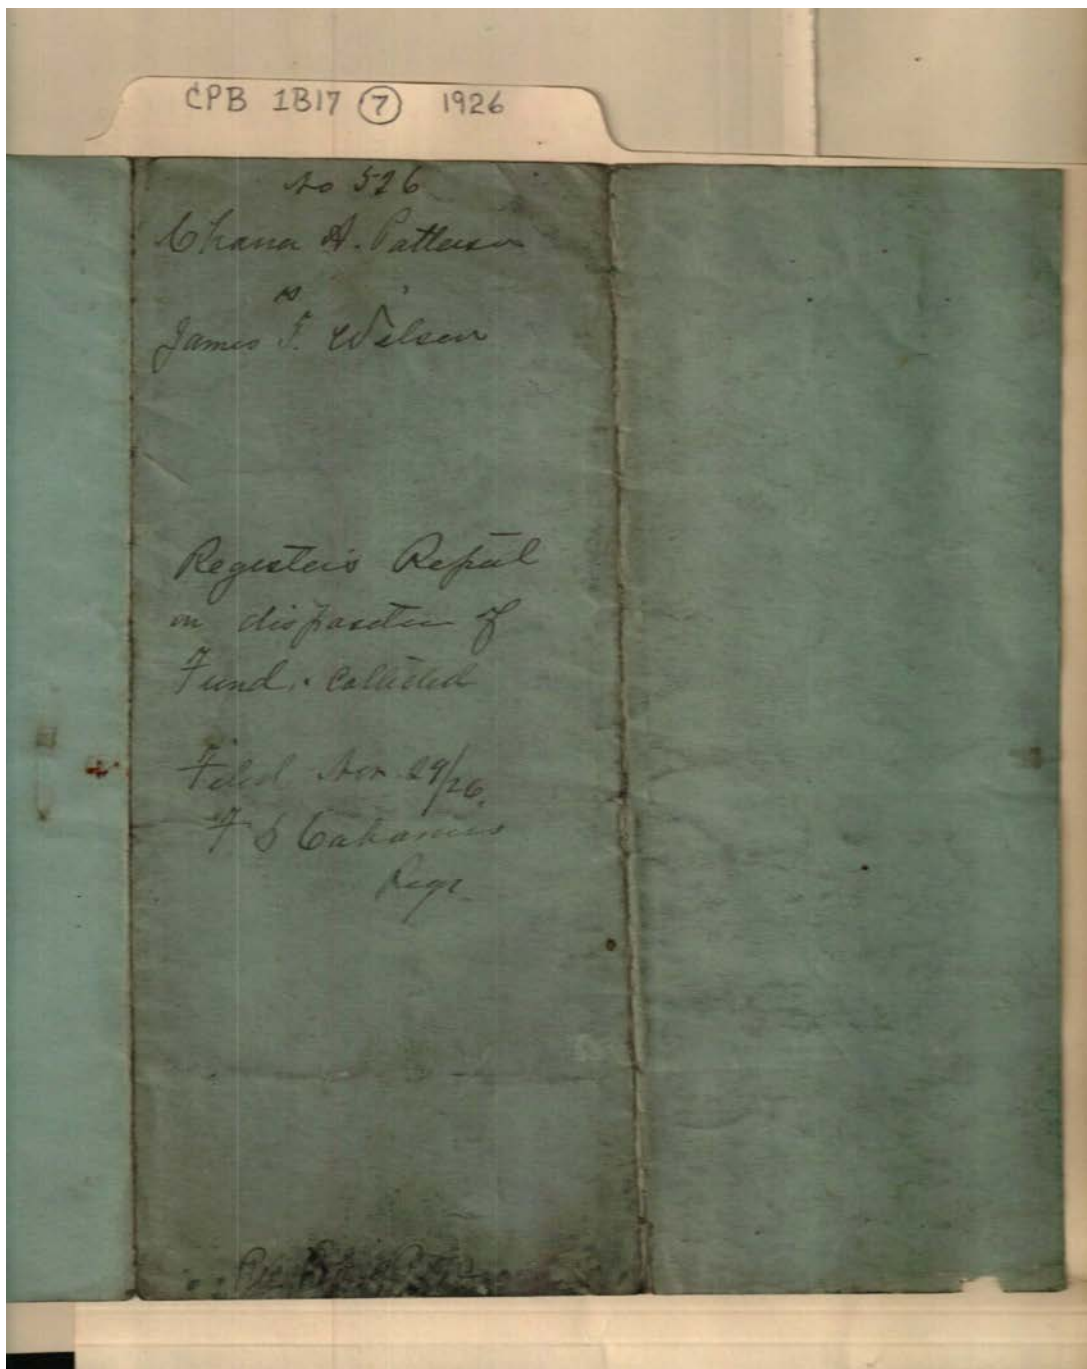 CPB 1B17 7 1926
No 526
A. Patterson
vs
James T. Wilson
Register's Report
on disposition of
Funds collected
Filed Nov. 29/26.
F S
Regr